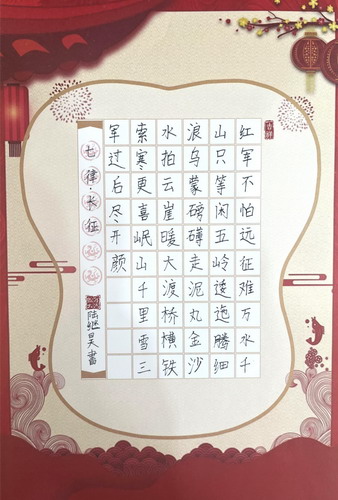 吉祥
红军不怕远征难万水千
山只等闲五岭逶迤腾细
浪乌蒙磅礴走泥丸金沙
水拍云崖暖大渡桥横铁
索寒更喜岷山千里雪三
军过后尽开颜
七律·长征
陆继昊書